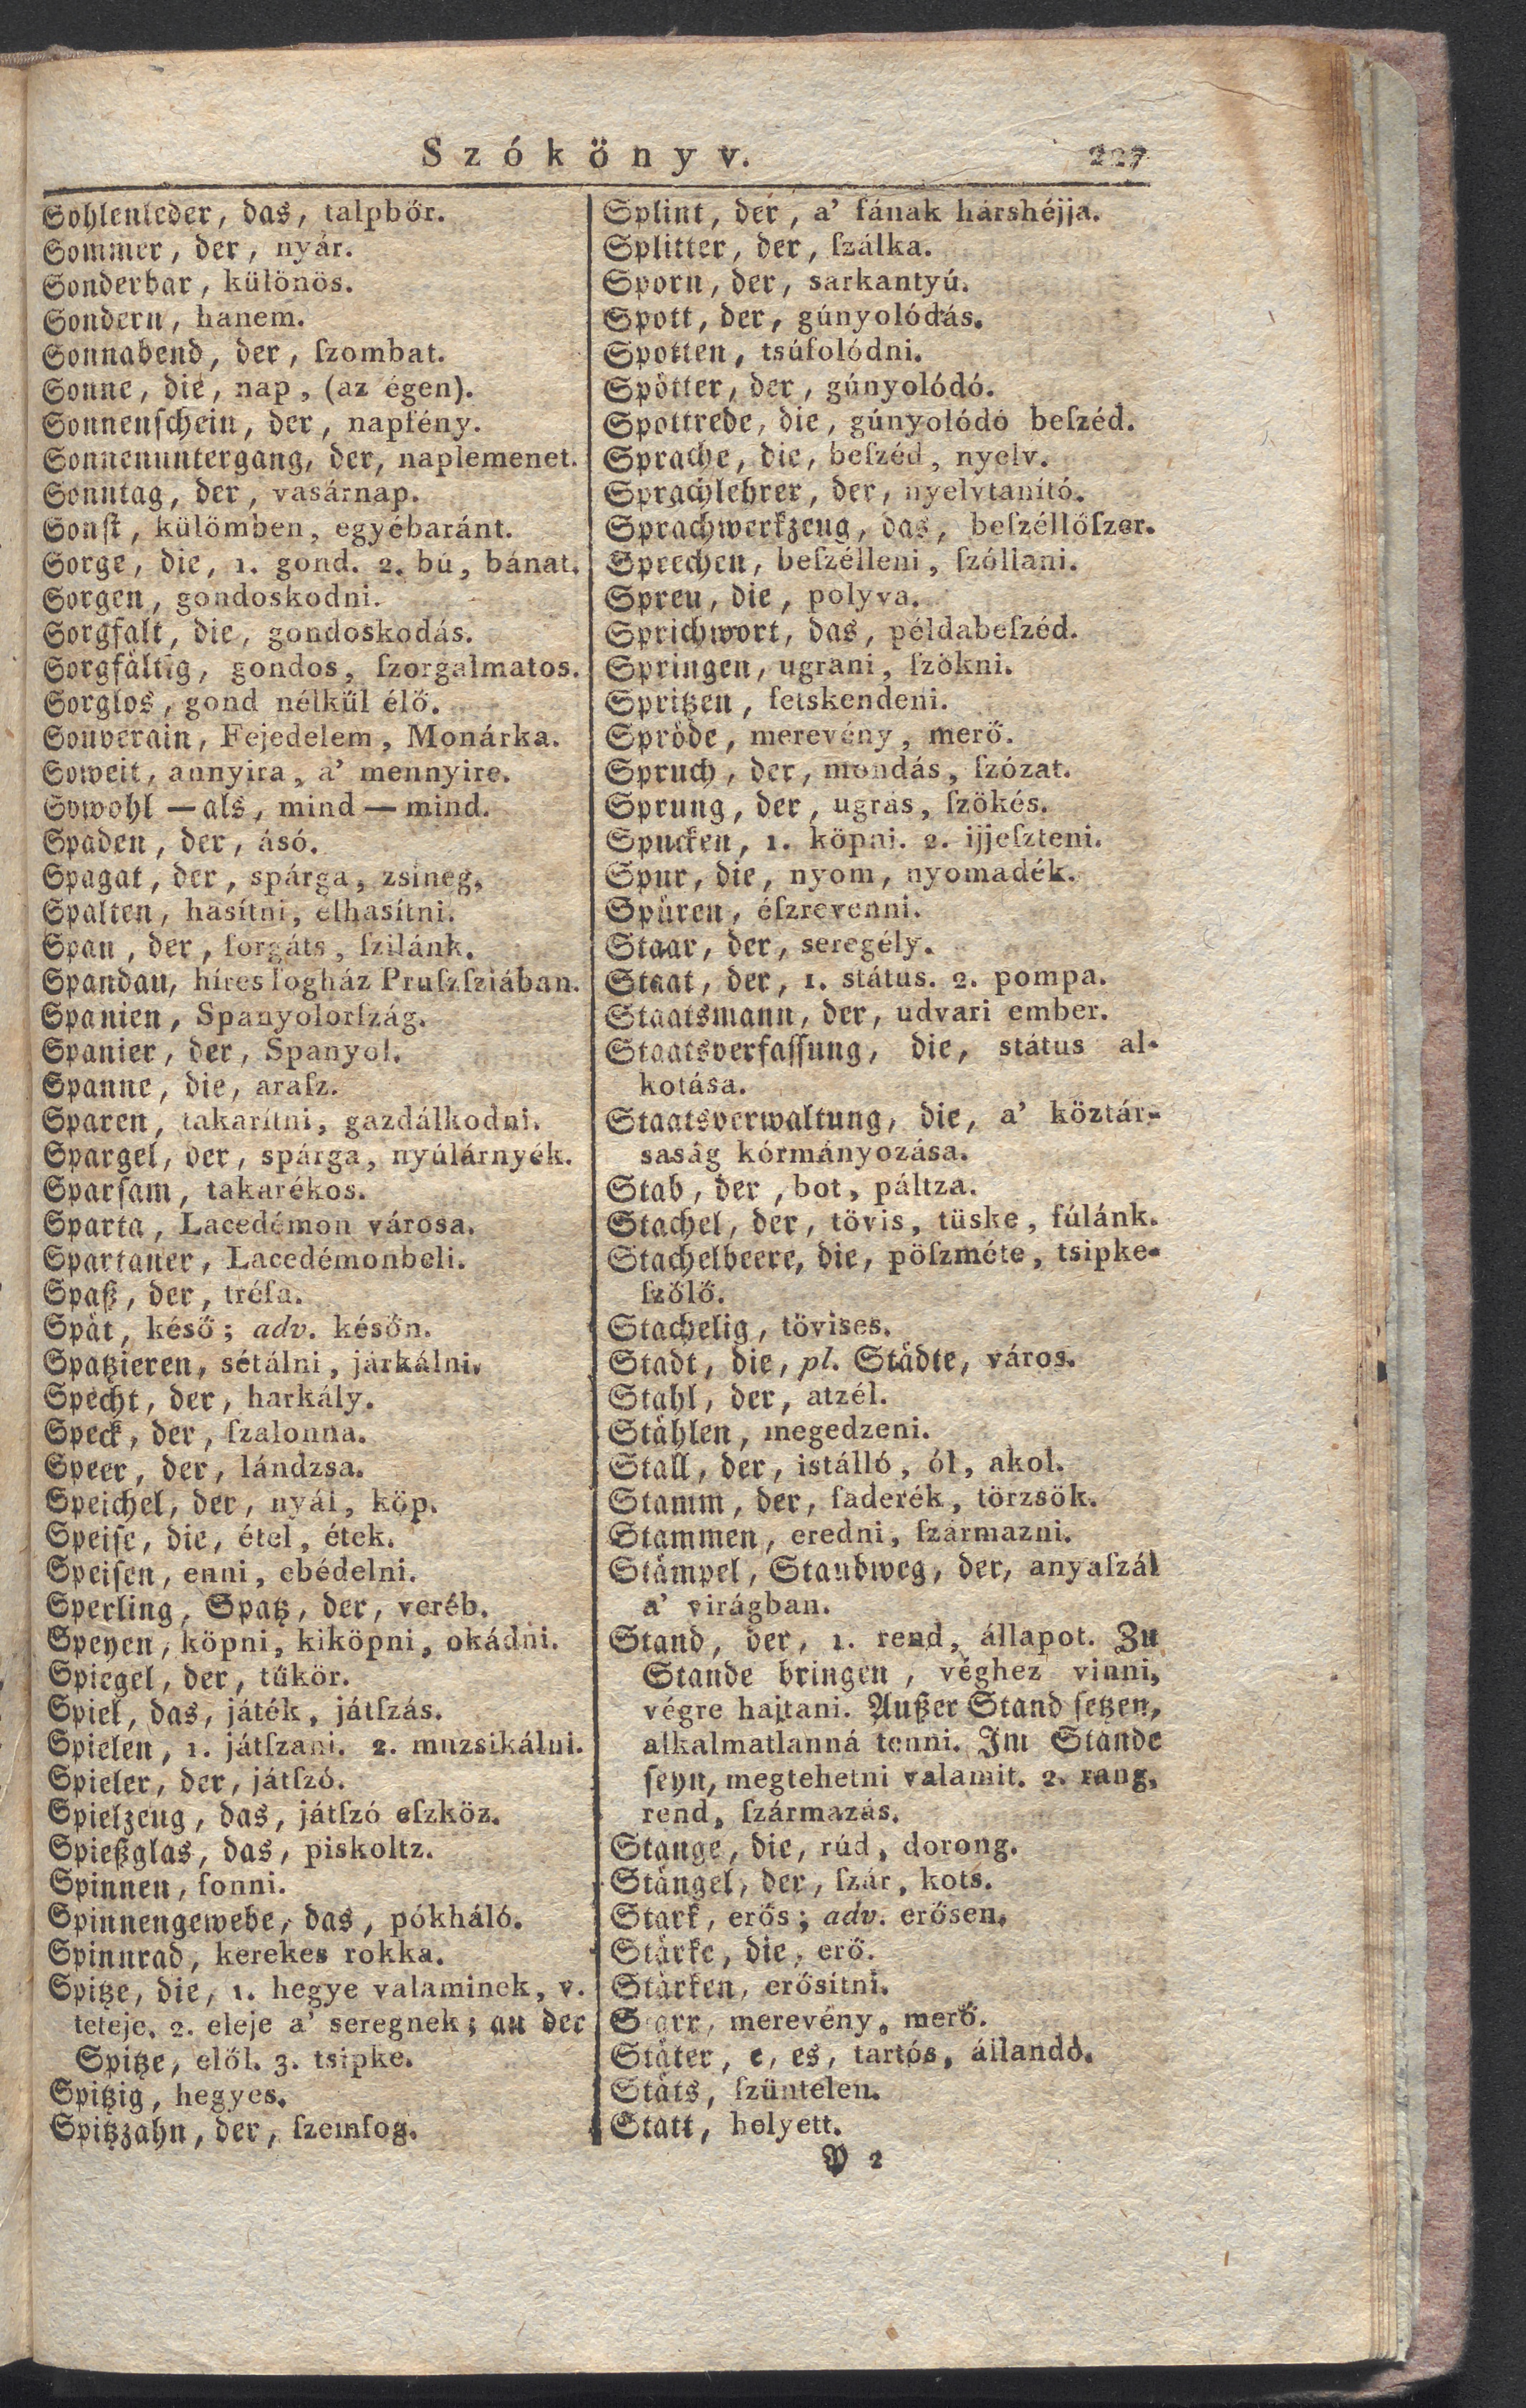 Szókönyv. 227
Sohlenleder, das, talpbőr.
Sommer, der, nyár.
Sonderbar, különös.
Sondern, hanem.
Sonnabend, der, ſzombat.
Sonne, die, nap, (az égen).
Sonnenſchein, der, napfény.
Sonnenuntergang, der, naplemenet.
Sonntag, der, vasárnap.
Sonſt, külömben, egyébaránt.
Sorge, die, 1. gond. 2. bú, bánat.
Sorgen, gondoskodni.
Sorgfalt, die, gondoskodás.
Sorgfältig, gondos, ſzorgalmatos.
Sorglos, gond nélkűl élő.
Souverain, Fejedelem, Monárka.
Soweit, annyira, a' mennyire.
Sowohl — als, mind — mind.
Spaden, der, ásó.
Spagat, der, spárga, zsineg.
Spalten, hasítni, elhasítni.
Span, der, forgáts, ſzilánk.
Spandau, híres fogház Pruſzſziában.
Spanien, Spanyolorſzág.
Spanier, der, Spanyol.
Spanne, die, araſz.
Sparen, takarítni, gazdálkodni.
Spargel, der, spárga, nyúlárnyék.
Sparſam, takarékos.
Sparta, Lacedémon városa.
Spartaner, Lacedémonbeli.
Spaß, der, tréfa.
Spät, késő; adv. későn.
Spatzieren, sétálni, járkálni.
Specht, der, harkály.
Speck, der, ſzalonna.
Speer, der, lándzsa.
Speichel, der, nyál, köp.
Speiſe, die, étel, étek.
Speiſen, enni, ebédelni.
Sperling, Spatz, der, veréb.
Speyen, köpni, kiköpni, okádni.
Spiegel, der, tűkör.
Spiel, das, játék, játſzás.
Spielen, 1. játſzani. 2. muzsikálni.
Spieler, der, játſzó.
Spielzeug, das, játſzó eſzköz.
Spießglas, das, piskoltz.
Spinnen, fonni.
Spinnengewebe, das, pókháló.
Spinnrad, kerekes rokka.
Spitze, die, 1. hegye valaminek, v.
teteje. 2. eleje a' seregnek; an der
Spitze, elől. 3. tsipke.
Spitzig, hegyes.
Spitzzahn, der, ſzemfog.
Splint, der, a' fának hárshéjja.
Splitter, der, ſzálka.
Sporn, der, sarkantyú.
Spott, der, gúnyolódás.
Spotten, tsúfolódni.
Spötter, der, gúnyolódó.
Spottrede, die, gúnyolódó beſzéd.
Sprache, die, beſzéd, nyelv.
Sprachlehrer, der, nyelvtanító.
Sprachwerkzeug, das, beſzéllőſzer.
Sprechen, beſzélleni, ſzóllani.
Spreu, die, polyva.
Sprichwort, das, példabeſzéd.
Springen, ugrani, ſzökni.
Spritzen, fetskendeni.
Spröde, merevény, merő.
Spruch, der, mondás, ſzózat.
Sprung, der, ugrás, ſzökés.
Spucken, 1. köpni. 2. ijjeſzteni.
Spur, die, nyom, nyomadék.
Spüren, éſzrevenni.
Staar, der, seregély.
Staat, der, 1. státus. 2. pompa.
Staatsmann, der, udvari ember.
Staatsverfaſſung, die, státus al-
kotása.
Staatsverwaltung, die, a' köztár-
saság kórmányozása.
Stab, der, bot, páltza.
Stachel, der, tövis, tüske, fúlánk.
Stachelbeere, die, pöſzméte, tsipke-
ſzőlő.
Stachelig, tövises.
Stadt, die, pl. Städte, város.
Stahl, der, atzél.
Stählen, megedzeni.
Stall, der, istálló, ól, akol.
Stamm, der, faderék, törzsök.
Stammen, eredni, ſzármazni.
Stämpel, Staubweg, der, anyaſzál
a' virágban.
Stand, der, 1. rend, állapot. Zu
Stande bringen, véghez vinni,
végre hajtani. Außer Stand ſetzen,
alkalmatlanná tenni. Im Stande
ſeyn, megtehetni valamit. 2. rang,
rend, ſzármazás.
Stange, die, rúd, dorong.
Stängel, der, ſzár, kots.
Stark, erős; adv. erősen.
Stärke, die, erő.
Stärken, erősítni.
Starr, merevény, merő.
Stäter, e, es, tartós, állandó.
Stäts, ſzüntelen.
Statt, helyett.
P 2